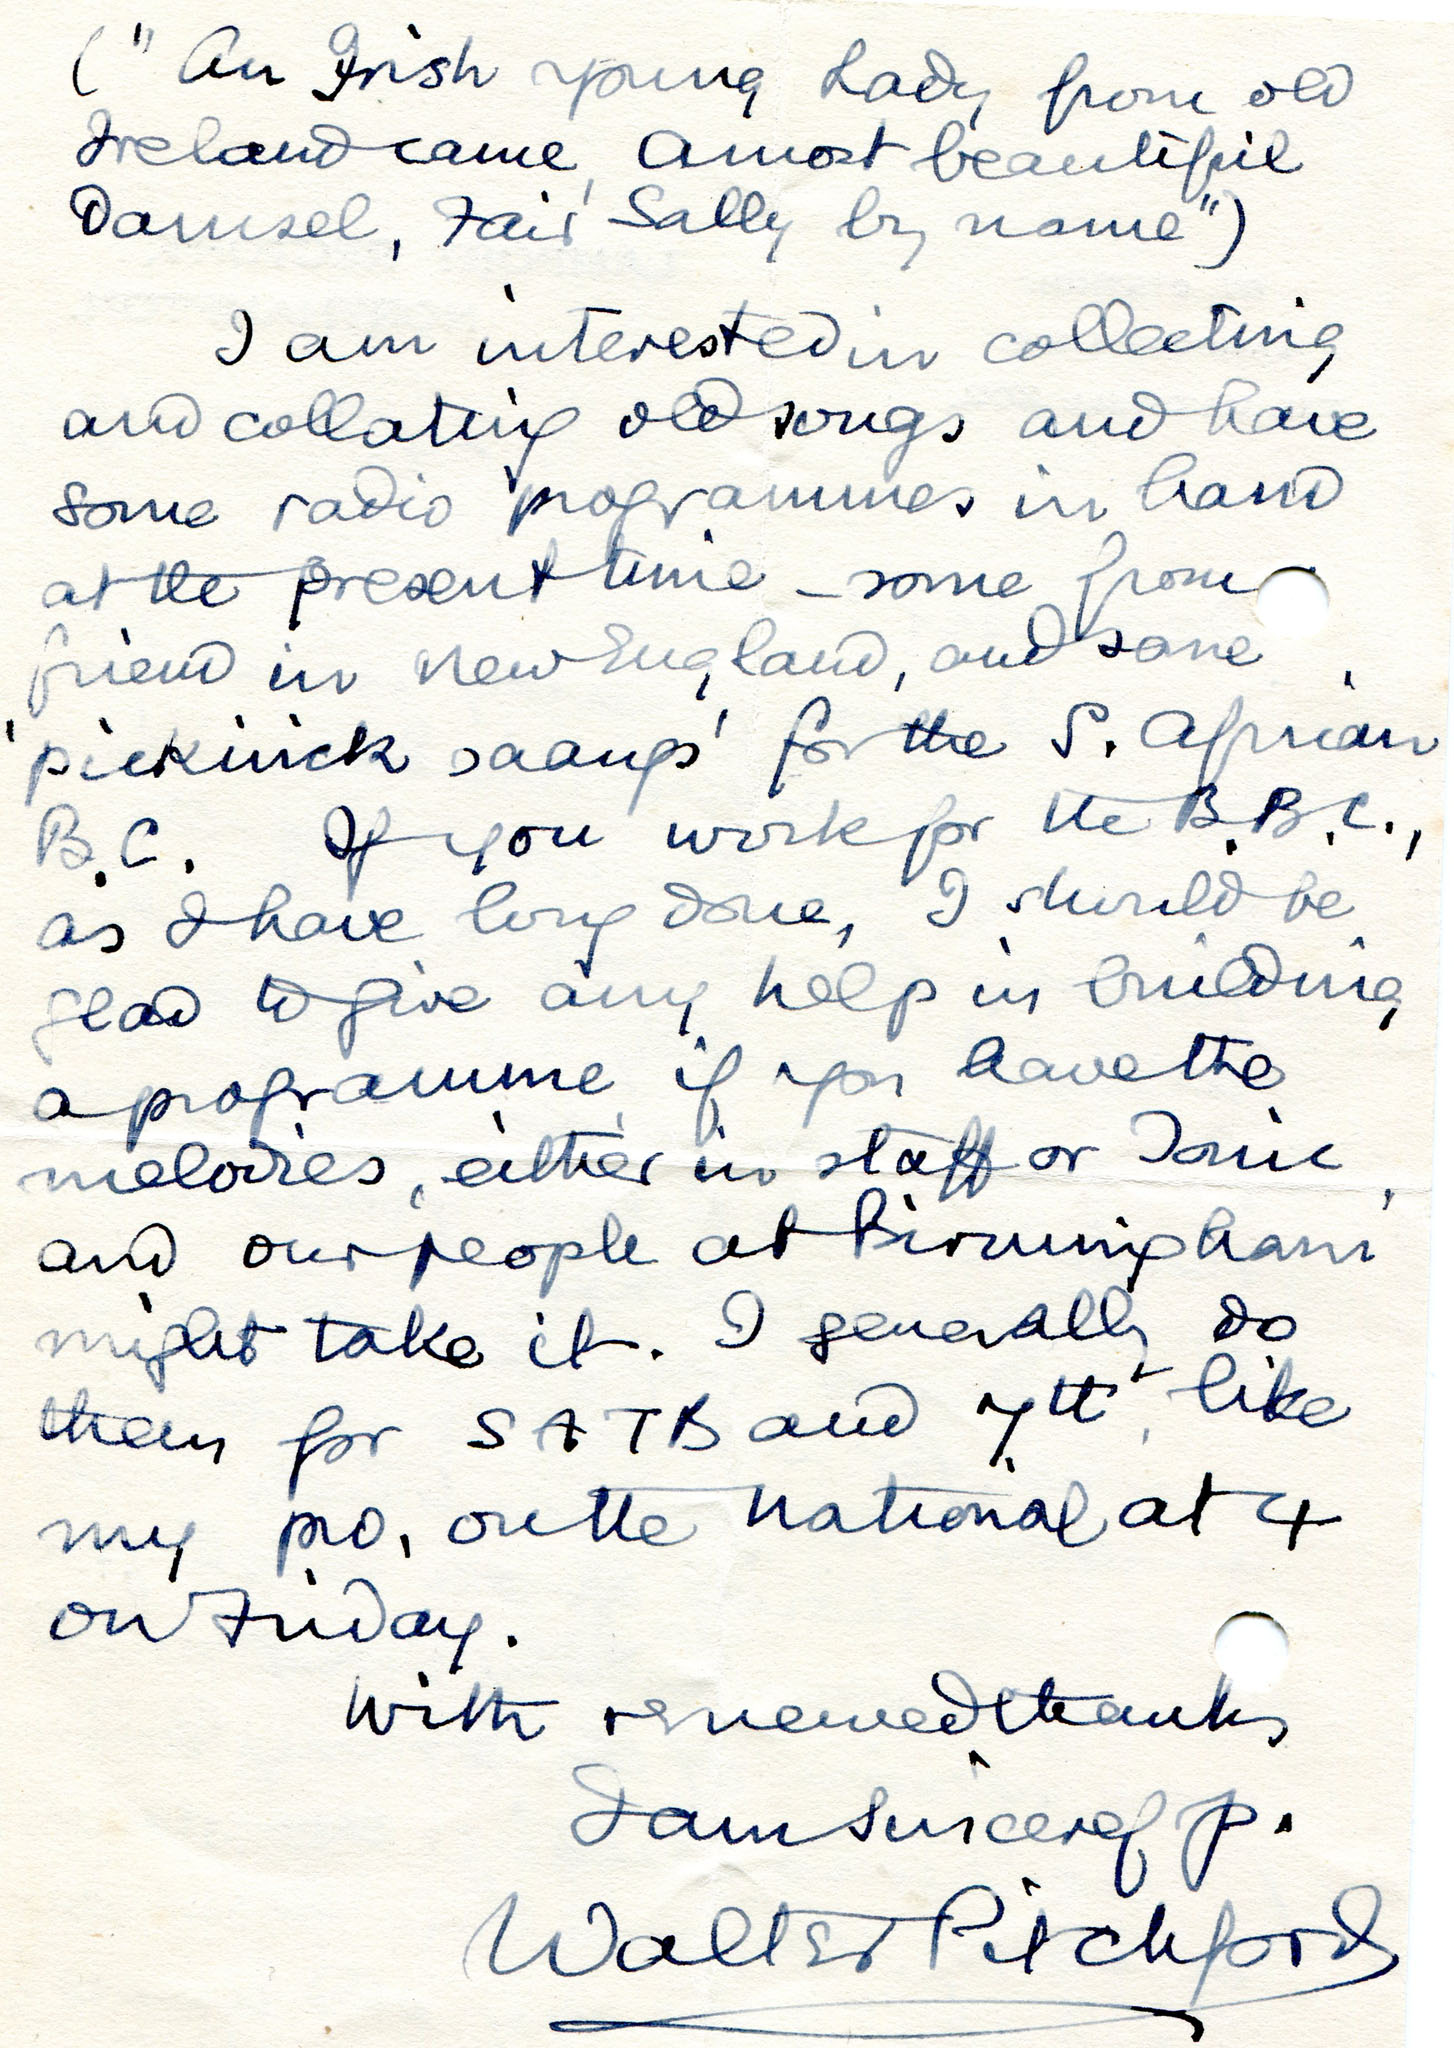 (" An Irish young Lady from old
Ireland came, a most beautiful
Damsel, Fair Sally by name")
I am interested in collecting
and collating old songs and have
some radio programmes in hand
at the present time – some from
friend in New England, and some
'pieknick saangs' for the S. African
B.C. If you work for the B.B.C.,
as I have long done, I should be
glad to give any help in building
a programme, if you have the
melodies, either in staff or Tonic,
and our people at Birmingham
might take it. I generally do
them for SATB and 7tt, like
my pro, on the National at 4
on Friday.
With renewed thanks
I am sincerely
Walter Pitchford